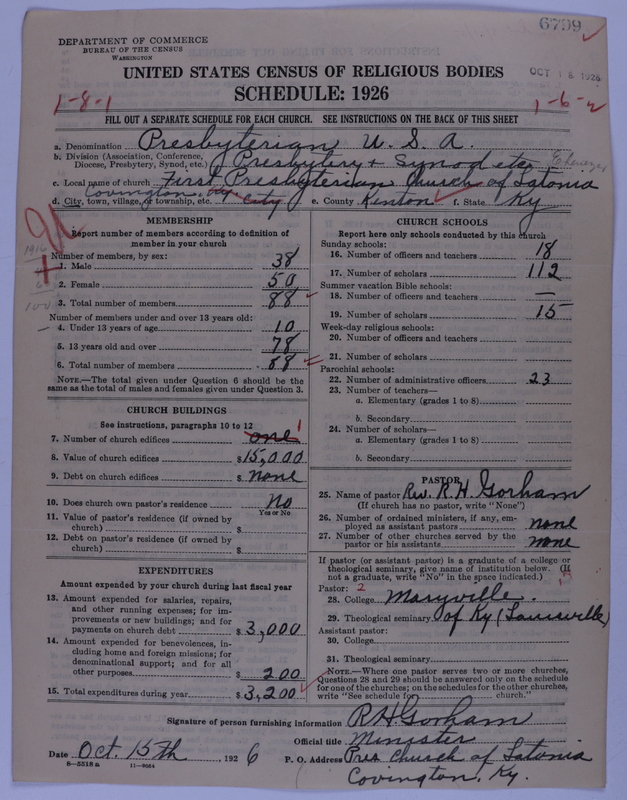 6799
DEPARTMENT OF COMMERCE
BUREAU OF THE CENSUS
WASHINGTON
OCT 18 1926
UNITED STATES CENSUS OF RELIGIOUS BODIES
SCHEDULE: 1926
1-8-1
1-6-2
FILL OUT A SEPARATE SCHEDULE FOR EACH CHURCH. SEE INSTRUCTIONS ON THE BACK OF THIS SHEET
a. Denomination Presbyterian U. S. A.
b. Division (Association, Conference, Diocese, Presbytery, Synod, etc.) Presbytery + Synod etc Ebenezer
c. Local name of church First Presbyterian Church of Latonia
d. City, town, village, or township, etc. Covington, Ky city e. County Kenton f. State Ky
MEMBERSHIP
Report number of members according to definition of member in your church
Number of members, by sex:
1. Male 38
2. Female 50
3. Total number of members 88
Number of members under and over 13 years old:
4. Under 13 years of age 10
5. 13 years old and over 78
6. Total number of members 88
NOTE.—The total given under Question 6 should be the same as the total of males and females given under Question 3.
CHURCH BUILDINGS
See instructions, paragraphs 10 to 12
7. Number of church edifices one 1
8. Value of church edifices $15,000
9. Debt on church edifices $ none
10. Does church own pastor's residence No
Yes or No
11. Value of pastor's residence (if owned by church) $
12. Debt on pastor's residence (if owned by church) $
EXPENDITURES
Amount expended by your church during last fiscal year
13. Amount expended for salaries, repairs, and other running expenses; for improvements or new buildings; and for payments on church debt $ 3,000
14. Amount expended for benevolences, including home and foreign missions; for denominational support; and for all other purposes $ 200
15. Total expenditures during year $ 3,200
CHURCH SCHOOLS
Report here only schools conducted by this church
Sunday schools:
16. Number of officers and teachers 18
17. Number of scholars 112
Summer vacation Bible schools:
18. Number of officers and teachers —
19. Number of scholars 15
Week-day religious schools:
20. Number of officers and teachers
21. Number of scholars
Parochial schools:
22. Number of administrative officers 23
23. Number of teachers—
a. Elementary (grades 1 to 8)
b. Secondary
24. Number of scholars—
a. Elementary (grades 1 to 8)
b. Secondary
PASTOR
25. Name of pastor Rev. R. H. Gorham
(If church has no pastor, write "None")
26. Number of ordained ministers, if any, employed as assistant pastors none
27. Number of other churches served by the pastor or his assistants none
If pastor (or assistant pastor) is a graduate of a college or theological seminary, give name of institution below. (If not a graduate, write "No" in the space indicated.)
Pastor: 2
28. College Maryville.
29. Theological seminary of Ky (Louisville)
Assistant pastor:
30. College
31. Theological seminary
NOTE.—Where one pastor serves two or more churches, Questions 28 and 29 should be answered only on the schedule for one of the churches; on the schedules for the other churches, write "See schedule for church."
Signature of person furnishing information R. H. Gorham
Official title Minister
Date Oct. 15th, 1926 P. O. Address Pres Church of Latonia
8—5518 a 11—9684 Covington, Ky.